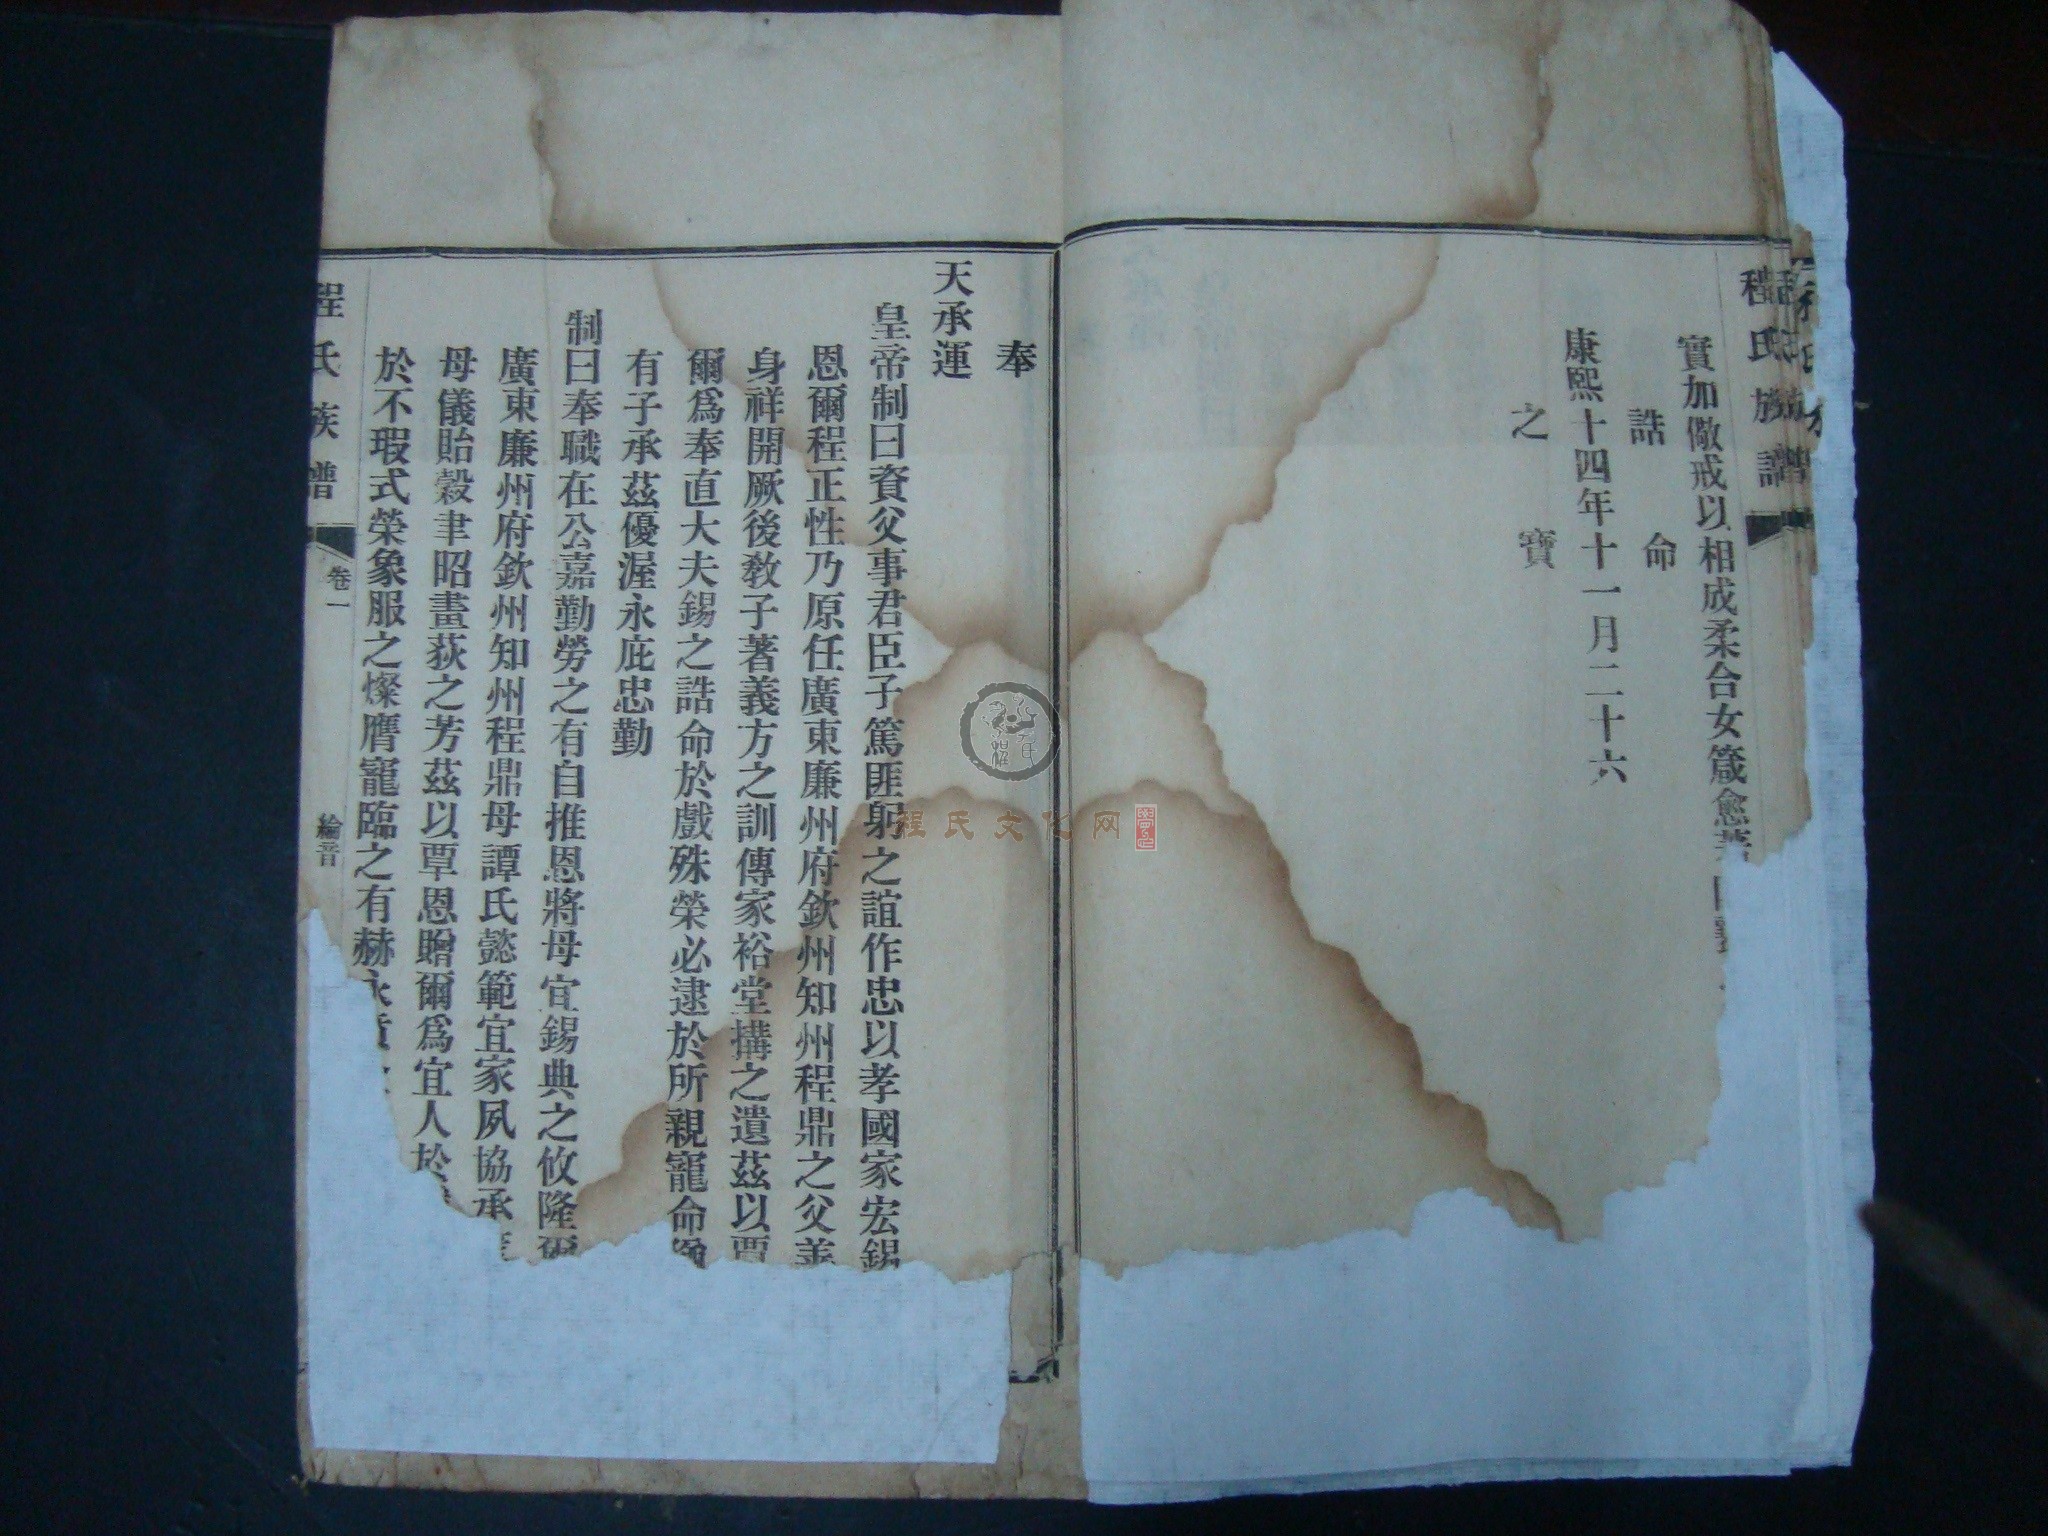 程氏族譜
實加儆戒以相成柔合女箴愈著
誥命
康熙十四年十一月二十六
之寶
奉
天承運
皇帝制曰資父事君臣子篤匪躬之誼作忠以孝國家宏錫
恩爾程正性乃原任廣東廉州府欽州知州程鼎之父善
身祥開厥後教子著義方之訓傳家裕堂搆之遺茲以覃
爾爲奉直大夫錫之誥命於戲殊榮必逮於所親寵命
有子承茲優渥永庇忠勤
制曰奉職在公嘉勤勞之有自推恩將母宜錫典之攸隆爾
廣東廉州府欽州知州程鼎母譚氏懿範宜家夙協承
母儀貽穀聿昭畫荻之芳茲以覃恩贈爾爲宜人於
於不瑕式榮象服之燦膺寵臨之有赫永賁
程氏族譜
卷一
綸音
程氏文化网